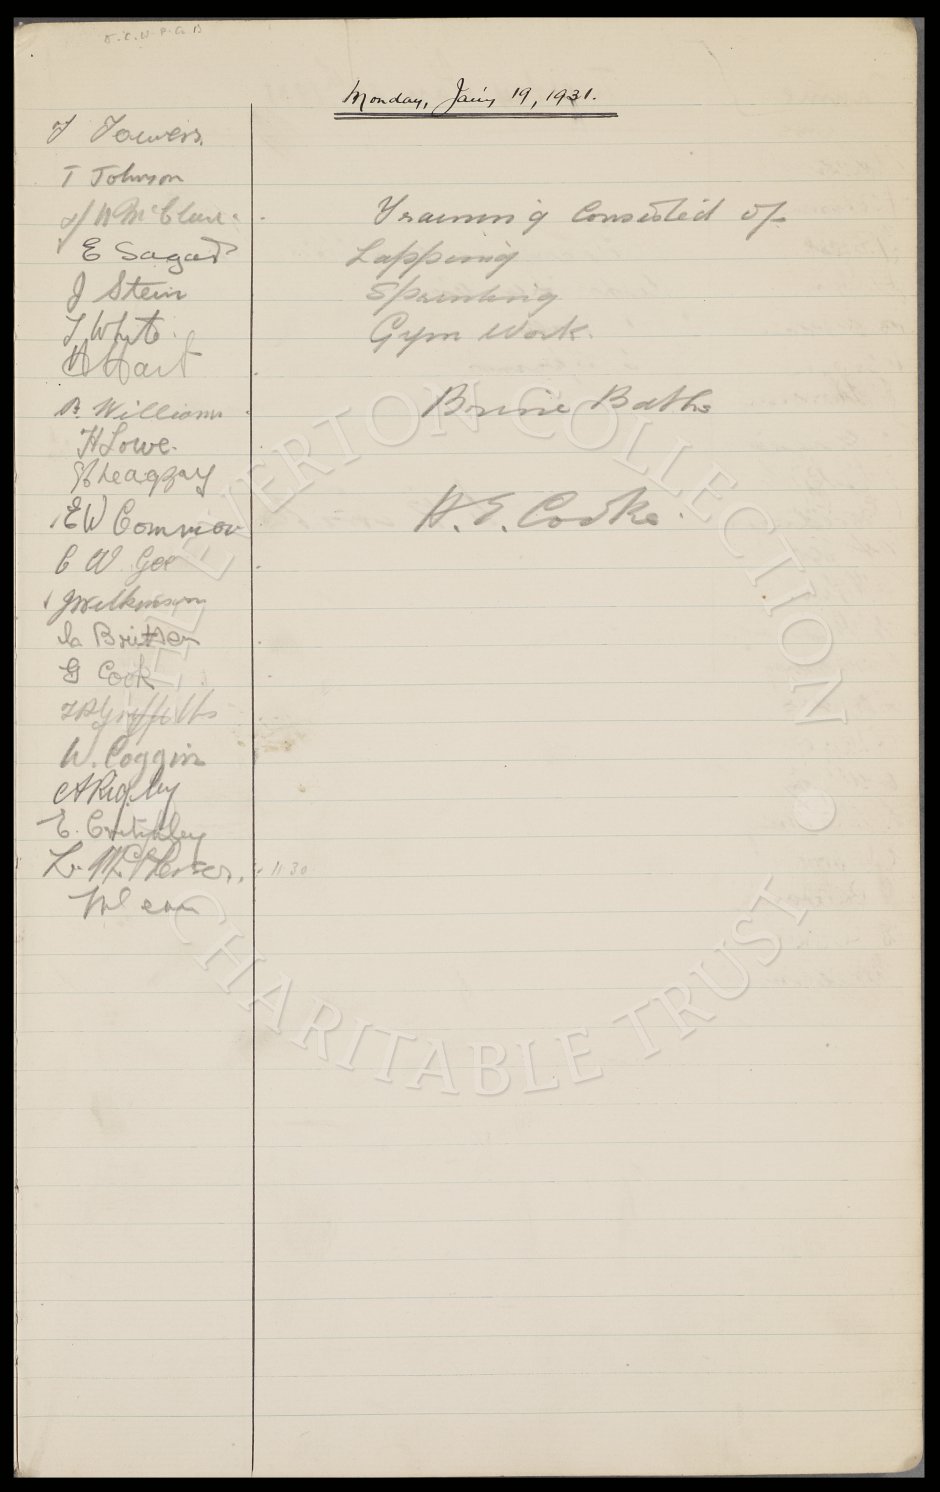 Monday, Jan'y 19, 1931.
T Towers.
T Johnson
J McClure
E Sagar
J Stein
T White
H Hart
B. Williams
H Lowe.
Gheagray
E W Common
C W Gee
J Wilkinson
C Britton
G Cook
T P Griffiths
W. Coggin
A Rigby
E. Critchley
L. McPherson. 11 30
Training Consisted of
Lapping
Sprinting
Gym Work.
Brine Baths
H. E. Cooke.
THE EVERTON COLLECTION
CHARITABLE TRUST ©